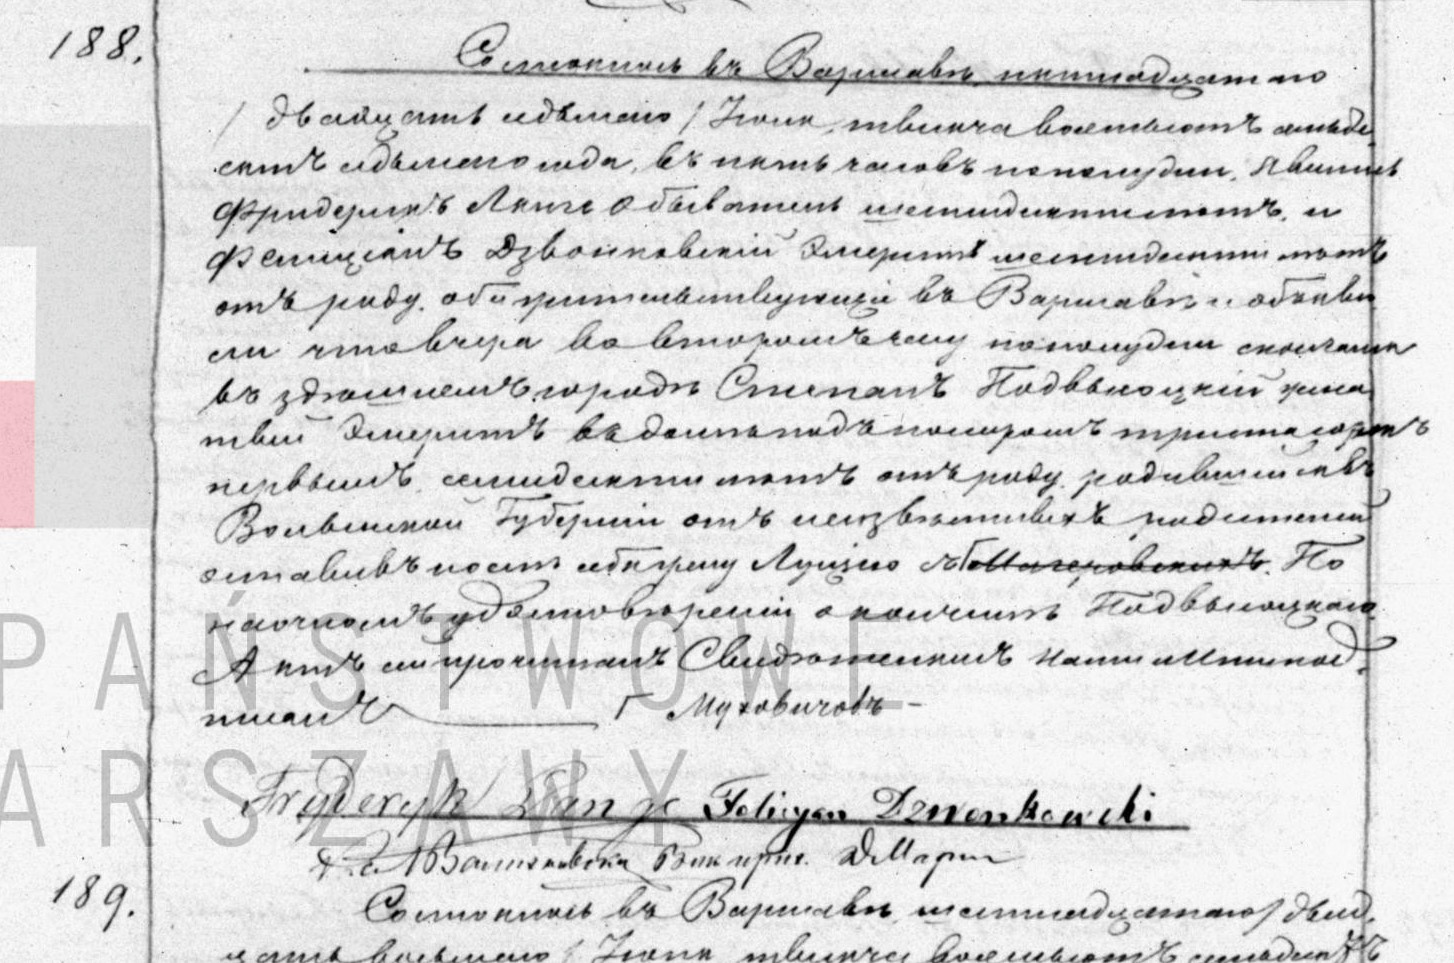 188.
Состоялось въ Варшавѣ, пятнадцатаго
/ двадцать седьмаго / Іюня, тысяча восемьсотъ семьде-
сятъ седьмаго года, въ пять часовъ пополудни. Явились
Фридерикъ Ланге Обыватель шестидесяти лѣтъ, и
Фелиціянъ Дзвонковскій Эмеритъ шестидесяти лѣтъ
отъ роду, оба жительствующіе въ Варшавѣ и объяви-
ли что вчера во второмъ часу пополудни скончался
въ здѣшнемъ городѣ Степанъ Подвысоцкій
Эмеритъ въ домѣ подъ номеромъ триста сорокъ
первымъ, семидесяти лѣтъ отъ роду, родившійся въ
Волынской Губерніи отъ неизвѣстныхъ родителей
оставивъ послѣ себя жену Луцію съ По
наочномъ удостовѣреніи о кончинѣ Подвысоцкаго
Актъ сей прочитанъ Свидѣтелямъ Нами и Ими под-
писанъ Г Муховичовъ
Fryderyk Lange Felicyan Dzwonkowski
189.
Состоялось въ Варшавѣ, шестнадцатаго / двад-
цать восьмаго / Іюня, тысяча восемьсотъ семьдесятъ
PAŃSTWOWE
ARSZAWY